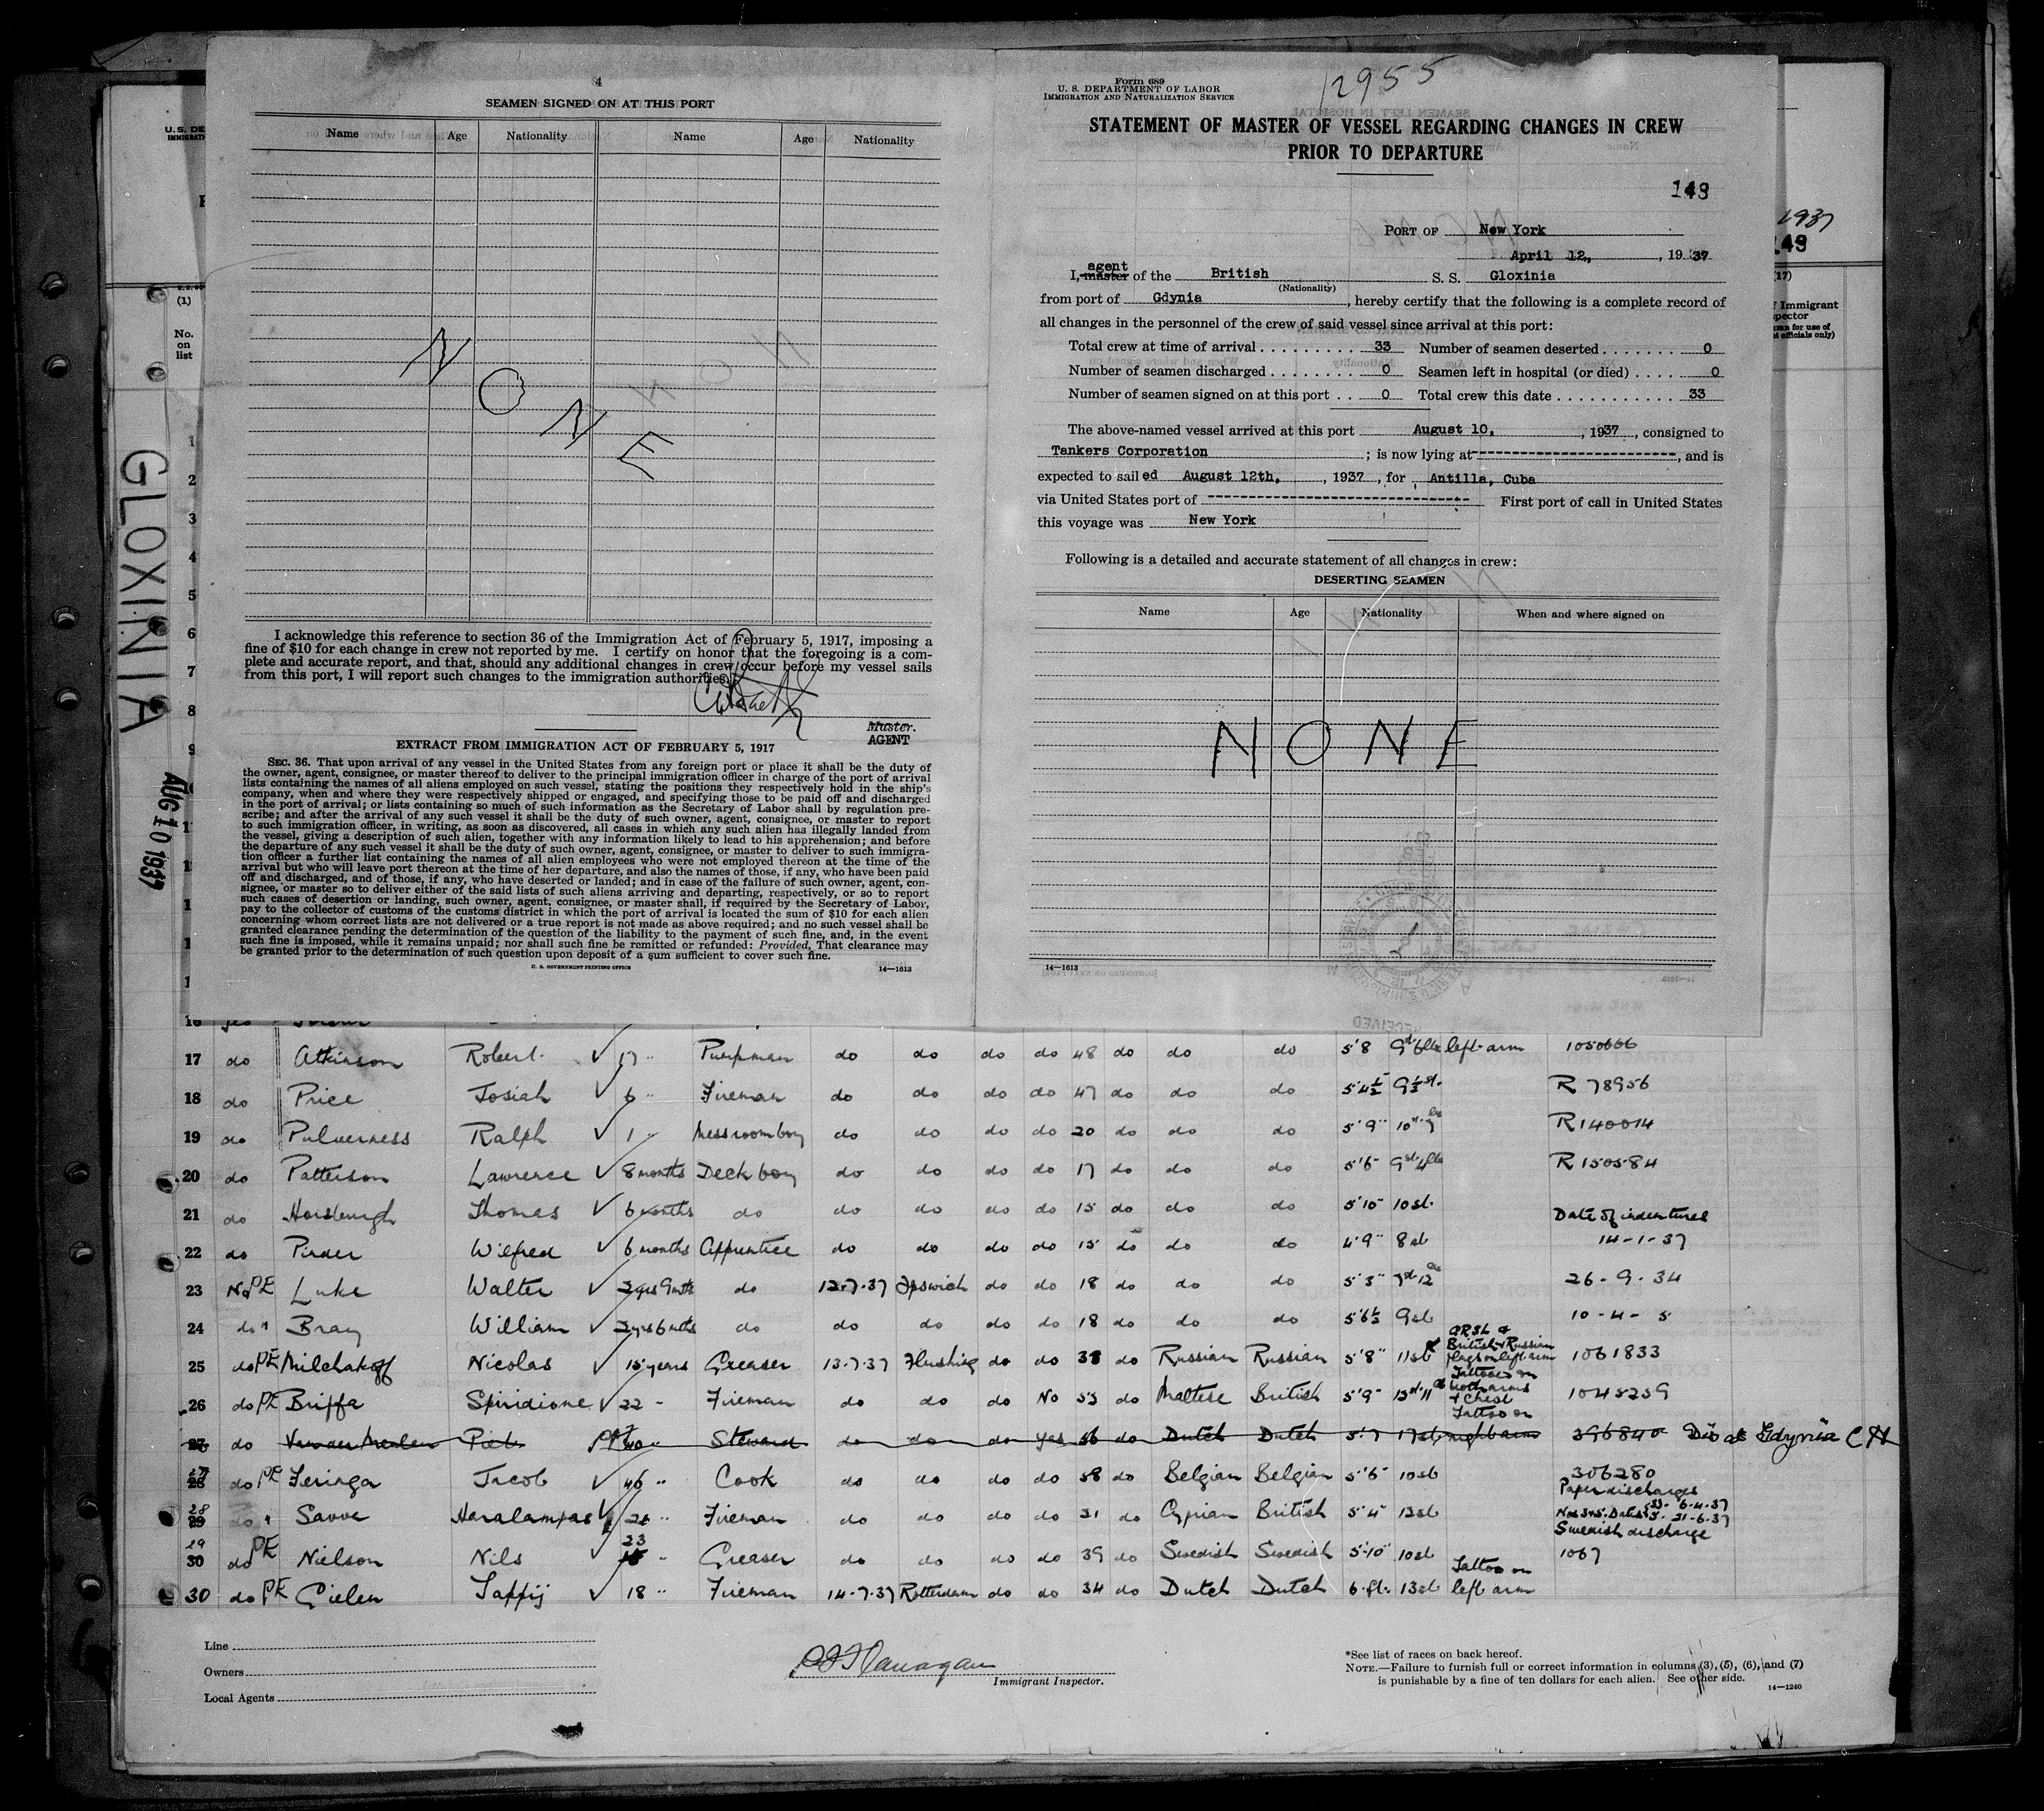 4
SEAMEN SIGNED ON AT THIS PORT
Name Age Nationality Name Age Nationality
N O N E
I acknowledge this reference to section 36 of the Immigration Act of February 5, 1917, imposing a
fine of $10 for each change in crew not reported by me. I certify on honor that the foregoing is a com-
plete and accurate report, and that, should any additional changes in crew occur before my vessel sails
from this port, I will report such changes to the immigration authorities.
Master.
AGENT
EXTRACT FROM IMMIGRATION ACT OF FEBRUARY 5, 1917
SEC. 36. That upon arrival of any vessel in the United States from any foreign port or place it shall be the duty of
the owner, agent, consignee, or master thereof to deliver to the principal immigration officer in charge of the port of arrival
lists containing the names of all aliens employed on such vessel, stating the positions they respectively hold in the ship's
company, when and where they were respectively shipped or engaged, and specifying those to be paid off and discharged
in the port of arrival; or lists containing so much of such information as the Secretary of Labor shall by regulation pre-
scribe; and after the arrival of any such vessel it shall be the duty of such owner, agent, consignee, or master to report
to such immigration officer, in writing, as soon as discovered, all cases in which any such alien has illegally landed from
the vessel, giving a description of such alien, together with any information likely to lead to his apprehension; and before
the departure of any such vessel it shall be the duty of such owner, agent, consignee, or master to deliver to such immigra-
tion officer a further list containing the names of all alien employees who were not employed thereon at the time of the
arrival but who will leave port thereon at the time of her departure, and also the names of those, if any, who have been paid
off and discharged, and of those, if any, who have deserted or landed; and in case of the failure of such owner, agent, con-
signee, or master so to deliver either of the said lists of such aliens arriving and departing, respectively, or so to report
such cases of desertion or landing, such owner, agent, consignee, or master shall, if required by the Secretary of Labor,
pay to the collector of customs of the customs district in which the port of arrival is located the sum of $10 for each alien
concerning whom correct lists are not delivered or a true report is not made as above required; and no such vessel shall be
granted clearance pending the determination of the question of the liability to the payment of such fine, and, in the event
such fine is imposed, while it remains unpaid; nor shall such fine be remitted or refunded: Provided, That clearance may
be granted prior to the determination of such question upon deposit of a sum sufficient to cover such fine.
U. S. GOVERNMENT PRINTING OFFICE 14—1613
Form 689
U. S. DEPARTMENT OF LABOR
IMMIGRATION AND NATURALIZATION SERVICE
12955
STATEMENT OF MASTER OF VESSEL REGARDING CHANGES IN CREW
PRIOR TO DEPARTURE
149
PORT OF New York
April 12, , 1937
I, master agent of the British S. S. Gloxinia
(Nationality)
from port of Gdynia , hereby certify that the following is a complete record of
all changes in the personnel of the crew of said vessel since arrival at this port:
Total crew at time of arrival 33 Number of seamen deserted 0
Number of seamen discharged 0 Seamen left in hospital (or died) 0
Number of seamen signed on at this port 0 Total crew this date 33
The above-named vessel arrived at this port August 10, , 1937 , consigned to
Tankers Corporation ; is now lying at , and is
expected to sailed August 12th, , 1937 , for Antilla, Cuba
via United States port of First port of call in United States
this voyage was New York
Following is a detailed and accurate statement of all changes in crew:
DESERTING SEAMEN
Name Age Nationality When and where signed on
N O N E
14—1613
U.S. DE
(1)
No.
on
list
1
2
3
4
5
6
7
8
9
GLOXINIA
AUG 10 1937
1937
(17)
f Immigrant
officials only)
16
17 do Atkinson Robert 17 " Pumpman do do do do 48 do do do 5'8 left arm 1050666
18 do Price Josiah 6 " Fireman do do do do 47 do do do 5'4½ 9½st. R 78956
19 do Pulverness Ralph 1 " Messroomboy do do do do 20 do do do 5'9" R140014
20 do Patterson Lawrence 8 months Deck boy do do do do 17 do do do 5'6" 9st 4lb R150584
21 do Horsburgh Thomas 6 months do do do do do 15 do do do 5'10" 10st. Date of indentures
22 do Pinder Wilfred 6 months Apprentice do do do do 15 do do do 4'9" 8st 14-1-37
23 No PE Luke Walter 2yrs 9mths do 12-7-37 Ipswich do do 18 do do do 5'3" 26-9-34
24 do " Bray William 2yrs 6mths do do do do do 18 do do do 5'6½ 9st 10-4-5
25 do PE Milchakoff Nicolas 15 years Greaser 13-7-37 Flushing do do 38 do Russian Russian 5'8" 11st British & Russian flags on left arm 1061833
26 do PE Briffa Spiridione 22 " Fireman do do do No 53 do Maltese British 5'9" Tattooes on both arms & Chest 1045259
27 do Van der Meulen Piet 40 " Steward do do do yes 56 do Dutch Dutch 5'7 17st Tattoo on right arm 396840 Dis at Gdynia CH
27 28 do PE Feringa Jacob 46 " Cook do do do do 58 do Belgian Belgian 5'6" 10st 306280
28 29 do " Savva Haralampas Fireman do do do do 31 do Cyprian British 5'4" 12st Paper discharges
29 30 do PE Nielson Nils 23 " Greaser do do do do 39 do Swedish Swedish 5'10" 10st Swedish discharge 1067
30 do PE Gielen Jappij 18 " Fireman 14-7-37 Rotterdam do do 34 do Dutch Dutch 6 ft. 13st Tattoo on left arm
Line
Owners
Local Agents
Immigrant Inspector.
*See list of races on back hereof.
NOTE.—Failure to furnish full or correct information in columns (3), (5), (6), and (7)
is punishable by a fine of ten dollars for each alien. See other side.
14—1240